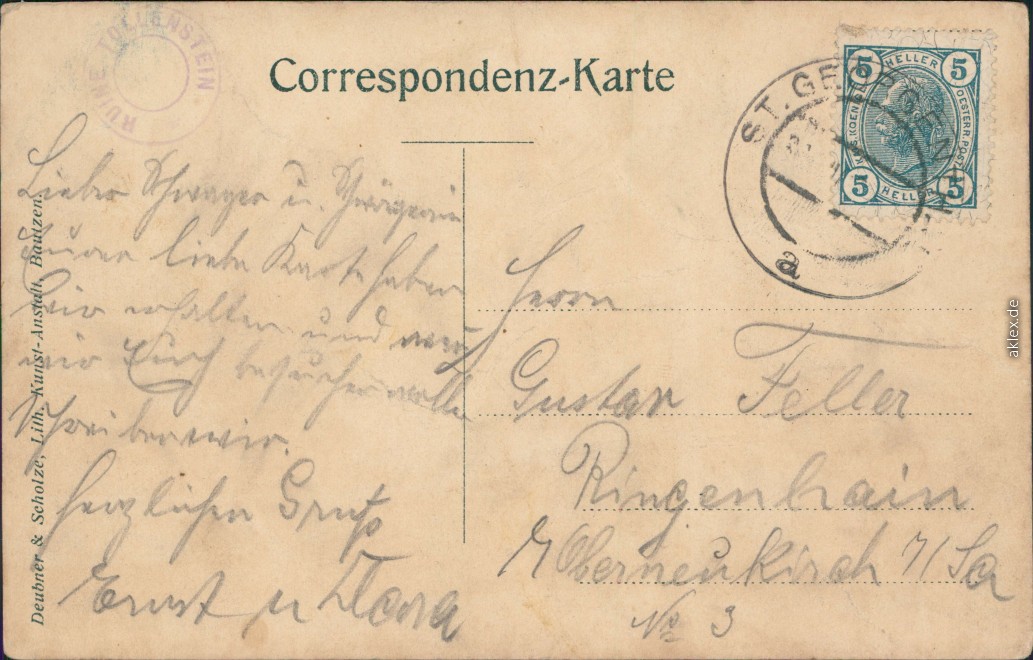 RUINE TOLLENSTEIN.
Correspondenz-Karte
5 HELLER 5
OESTERR. POST
5 HELLER 5
ST. GEORGEN
a
Lieber Schwager u. Schwägerin
Eure liebe Karte haben
wir erhalten und
wir Euch besuchen wollen
Schreiben wir.
Herzlichen Gruß
Ernst u Dora
Herrn
Gustav Feller
Ringenhain
Oberneukirch i/Sa
No 3
Deubner & Scholze, Lith. Kunst-Anstalt, Bautzen.
aklex.de